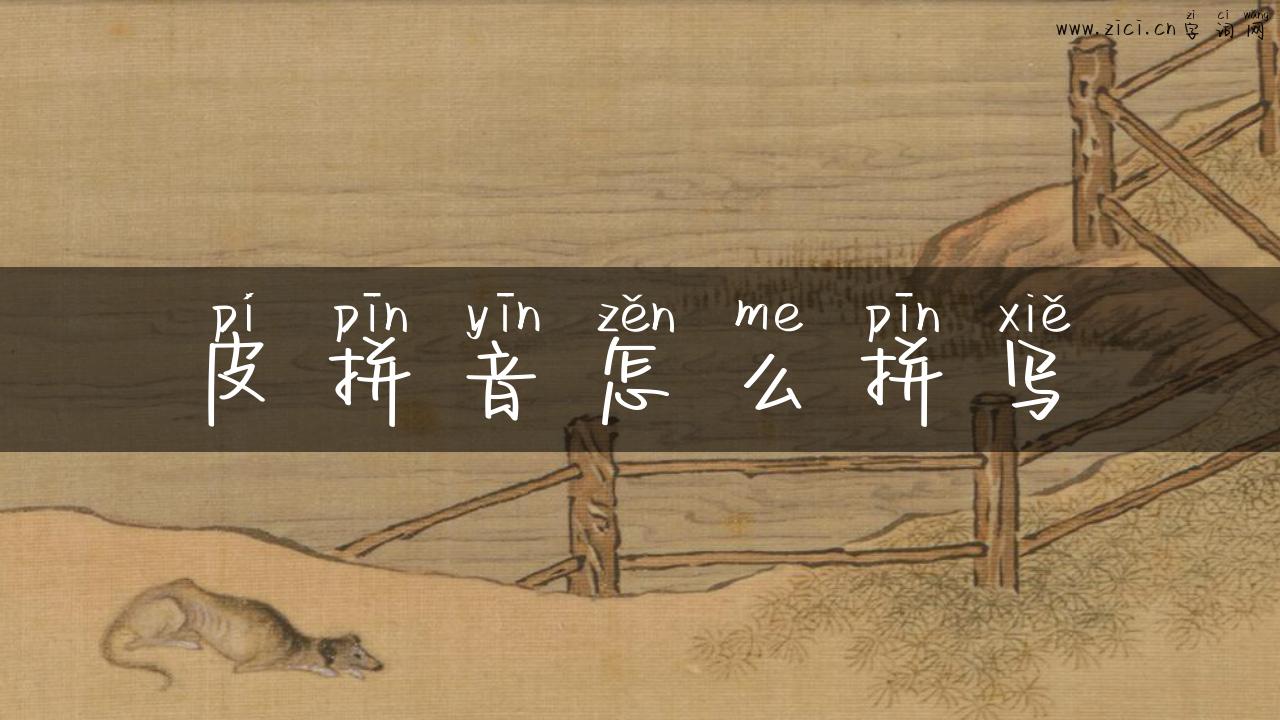 www.zici.cn字词网
zi ci wang
pí pīn yīn zěn me pīn xiě
皮拼音怎么拼写